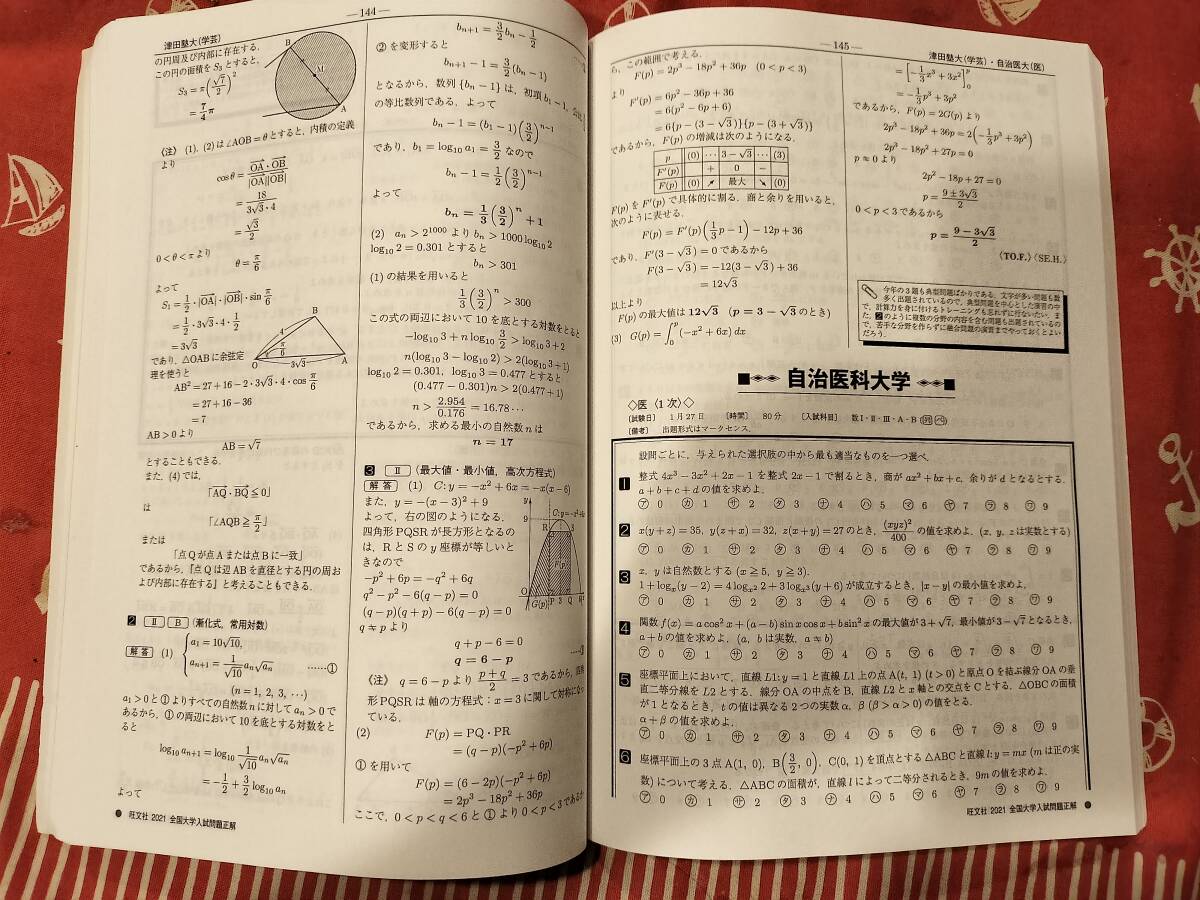 ―144―
津田塾大(学芸)
の円周及び内部に存在する.
この円の面積をS₃とすると,
S₃=π(√7/2)²
=7/4 π
B
M
A
〈注〉 (1), (2)は∠AOB=θとすると, 内積の定義
より
cosθ=OA・OB/|OA||OB|
=18/3√3・4
=√3/2
0<θ<πより
θ=π/6
よって
S₁=1/2・|OA|・|OB|・sin π/6
=1/2・3√3・4・1/2
=3√3
であり, △OABに余弦定
理を使うと
B
4
π/6
O
3√3
A
AB²=27+16-2・3√3・4・cos π/6
=27+16-36
=7
AB>0より
AB=√7
とすることもできる.
また, (4)では,
「AQ・BQ≦0」
は
「∠AQB≧π/2」
または
「点Qが点Aまたは点Bに一致」
であるから,「点Qは辺ABを直径とする円の周お
よび内部に存在する」と考えることもできる.
2 Ⅱ B (漸化式, 常用対数)
解答 (1) {a₁=10√10,
aₙ₊₁=1/√10 aₙ√aₙ ……①
(n=1, 2, 3, …)
a₁>0と①よりすべての自然数nに対してaₙ>0で
あるから, ①の両辺において10を底とする対数をと
ると
log₁₀aₙ₊₁=log₁₀ 1/√10 aₙ√aₙ
=-1/2+3/2 log₁₀aₙ
よって
bₙ₊₁=3/2 bₙ-1/2
②を変形すると
bₙ₊₁-1=3/2(bₙ-1)
となるから, 数列{bₙ-1}は, 初項b₁-1,
の等比数列である. よって
bₙ-1=(b₁-1)(3/2)ⁿ⁻¹
であり, b₁=log₁₀a₁=3/2なので
bₙ-1=1/2(3/2)ⁿ⁻¹
よって
bₙ=1/3(3/2)ⁿ+1
(2) aₙ>2¹⁰⁰⁰よりbₙ>1000log₁₀2
log₁₀2=0.301とすると
bₙ>301
(1)の結果を用いると
1/3(3/2)ⁿ>300
この式の両辺において10を底とする対数をとると
-log₁₀3+nlog₁₀ 3/2>log₁₀3+2
n(log₁₀3-log₁₀2)>2(log₁₀3+1)
log₁₀2=0.301, log₁₀3=0.477とすると
(0.477-0.301)n>2(0.477+1)
n>2.954/0.176=16.78…
であるから, 求める最小の自然数nは
n=17
3 Ⅱ (最大値・最小値, 高次方程式)
解答 (1) C:y=-x²+6x=-x(x-6)
また, y=-(x-3)²+9
よって, 右の図のようになる.
四角形PQSRが長方形となるの
は, RとSのy座標が等しいと
きなので
-p²+6p=-q²+6q
q²-p²-6(q-p)=0
(q-p)(q+p)-6(q-p)=0
q≠pより
q+p-6=0
q=6-p
y
9
R
S
F(p)
O
G(p)
P 3 Q
〈注〉 q=6-pより p+q/2=3であるから,
形PQSRは軸の方程式:x=3に関して対称になっ
ている.
(2) F(p)=PQ・PR
=(q-p)(-p²+6p)
①を用いて
F(p)=(6-2p)(-p²+6p)
=2p³-18p²+36p
ここで, 0<p<q=6と①より0<p<3であるか
● 旺文社 2021 全国大学入試問題正解
―145―
津田塾大(学芸)・自治医大(医)
ら, この範囲で考える.
F(p)=2p³-18p²+36p (0<p<3)
より
F′(p)=6p²-36p+36
=6(p²-6p+6)
=6{p-(3-√3)}{p-(3+√3)}
であるから, F(p)の増減は次のようになる.
p (0) … 3-√3 … (3)
F′(p) + 0 -
F(p) (0) ↗ 最大 ↘ (0)
F(p)をF′(p)で具体的に割る. 商と余りを用いると,
次のように表せる.
F(p)=F′(p)(1/3 p-1)-12p+36
であり, F′(3-√3)=0であるから
F(3-√3)=-12(3-√3)+36
=12√3
以上より
F(p)の最大値は12√3 (p=3-√3のとき)
(3) G(p)=∫₀ᵖ(-x²+6x)dx
=[-1/3 x³+3x²]₀ᵖ
=-1/3 p³+3p²
であるから, F(p)=2G(p)より
2p³-18p²+36p=2(-1/3 p³+3p²)
2p³-18p²+27p=0
p≠0より
2p²-18p+27=0
p=9±3√3/2
0<p<3であるから
p=9-3√3/2
〈TO.F.〉〈SE.H.〉
今年の3題も典型問題ばかりである. 文字が多い問題も数
多く出題されているので, 典型問題を中心とした演習の中
で, 計算力を身に付けるトレーニングも忘れずに行ないたい. ま
た, 2のように複数の分野の内容を含む問題も出題されているの
で, 苦手な分野を作らずに融合問題の演習までやっておくとよい
だろう.
自治医科大学
◇医〈1次〉◇
〔試験日〕 1月27日 〔時間〕 80分 〔入試科目〕 数Ⅰ・Ⅱ・Ⅲ・A・B (列 ベ)
〔備考〕 出題形式はマークセンス.
設問ごとに, 与えられた選択肢の中から最も適当なものを一つ選べ.
1 整式4x³-3x²+2x-1を整式2x-1で割るとき, 商がax²+bx+c, 余りがdとなるとする.
a+b+c+dの値を求めよ.
㋐ 0 ㋕ 1 ㋚ 2 ㋟ 3 ㋤ 4 ㋩ 5 ㋮ 6 ㋳ 7 ㋶ 8 ㋻ 9
2 x(y+z)=35, y(z+x)=32, z(x+y)=27のとき, (xyz)²/400の値を求めよ. (x, y, zは実数とする)
㋐ 0 ㋕ 1 ㋚ 2 ㋟ 3 ㋤ 4 ㋩ 5 ㋮ 6 ㋳ 7 ㋶ 8 ㋻ 9
3 x, yは自然数とする(x≧5, y≧3).
1+logₓ(y-2)=4logₓ²2+3logₓ³(y+6)が成立するとき, |x-y|の最小値を求めよ.
㋐ 0 ㋕ 1 ㋚ 2 ㋟ 3 ㋤ 4 ㋩ 5 ㋮ 6 ㋳ 7 ㋶ 8 ㋻ 9
4 関数f(x)=acos²x+(a-b)sinxcosx+bsin²xの最大値が3+√7, 最小値が3-√7となるとき,
a+bの値を求めよ. (a, bは実数, a≠b)
㋐ 0 ㋕ 1 ㋚ 2 ㋟ 3 ㋤ 4 ㋩ 5 ㋮ 6 ㋳ 7 ㋶ 8 ㋻ 9
5 座標平面上において, 直線L1:y=1と直線L1上の点A(t, 1) (t>0)と原点Oを結ぶ線分OAの垂
直二等分線をL2とする. 線分OAの中点をB, 直線L2とx軸との交点をCとする. △OBCの面積
が1となるとき, tの値は異なる2つの実数α, β(β>α>0)の値をとる.
α+βの値を求めよ.
㋐ 0 ㋕ 1 ㋚ 2 ㋟ 3 ㋤ 4 ㋩ 5 ㋮ 6 ㋳ 7 ㋶ 8 ㋻ 9
6 座標平面上の3点A(1, 0), B(3/2, 0), C(0, 1)を頂点とする△ABCと直線l:y=mx (mは正の実
数)について考える. △ABCの面積が, 直線lによって二等分されるとき, 9mの値を求めよ.
㋐ 0 ㋕ 1 ㋚ 2 ㋟ 3 ㋤ 4 ㋩ 5 ㋮ 6 ㋳ 7 ㋶ 8 ㋻ 9
旺文社 2021 全国大学入試問題正解 ●